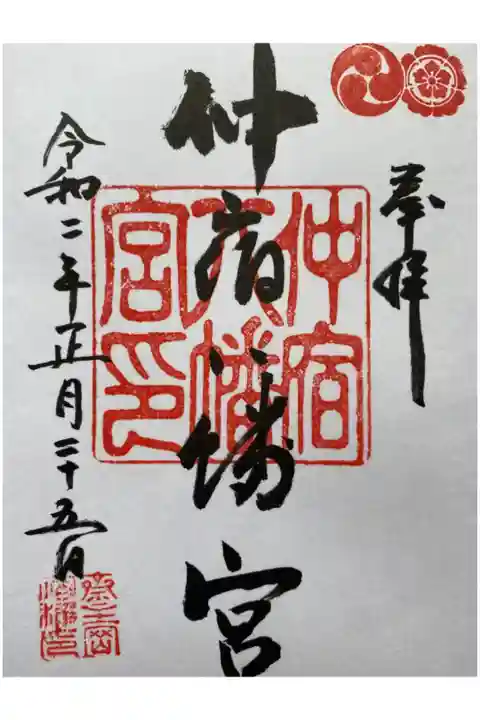 奉拝
仲宿八幡宮
仲宿八幡宮印
令和二年正月二十五日